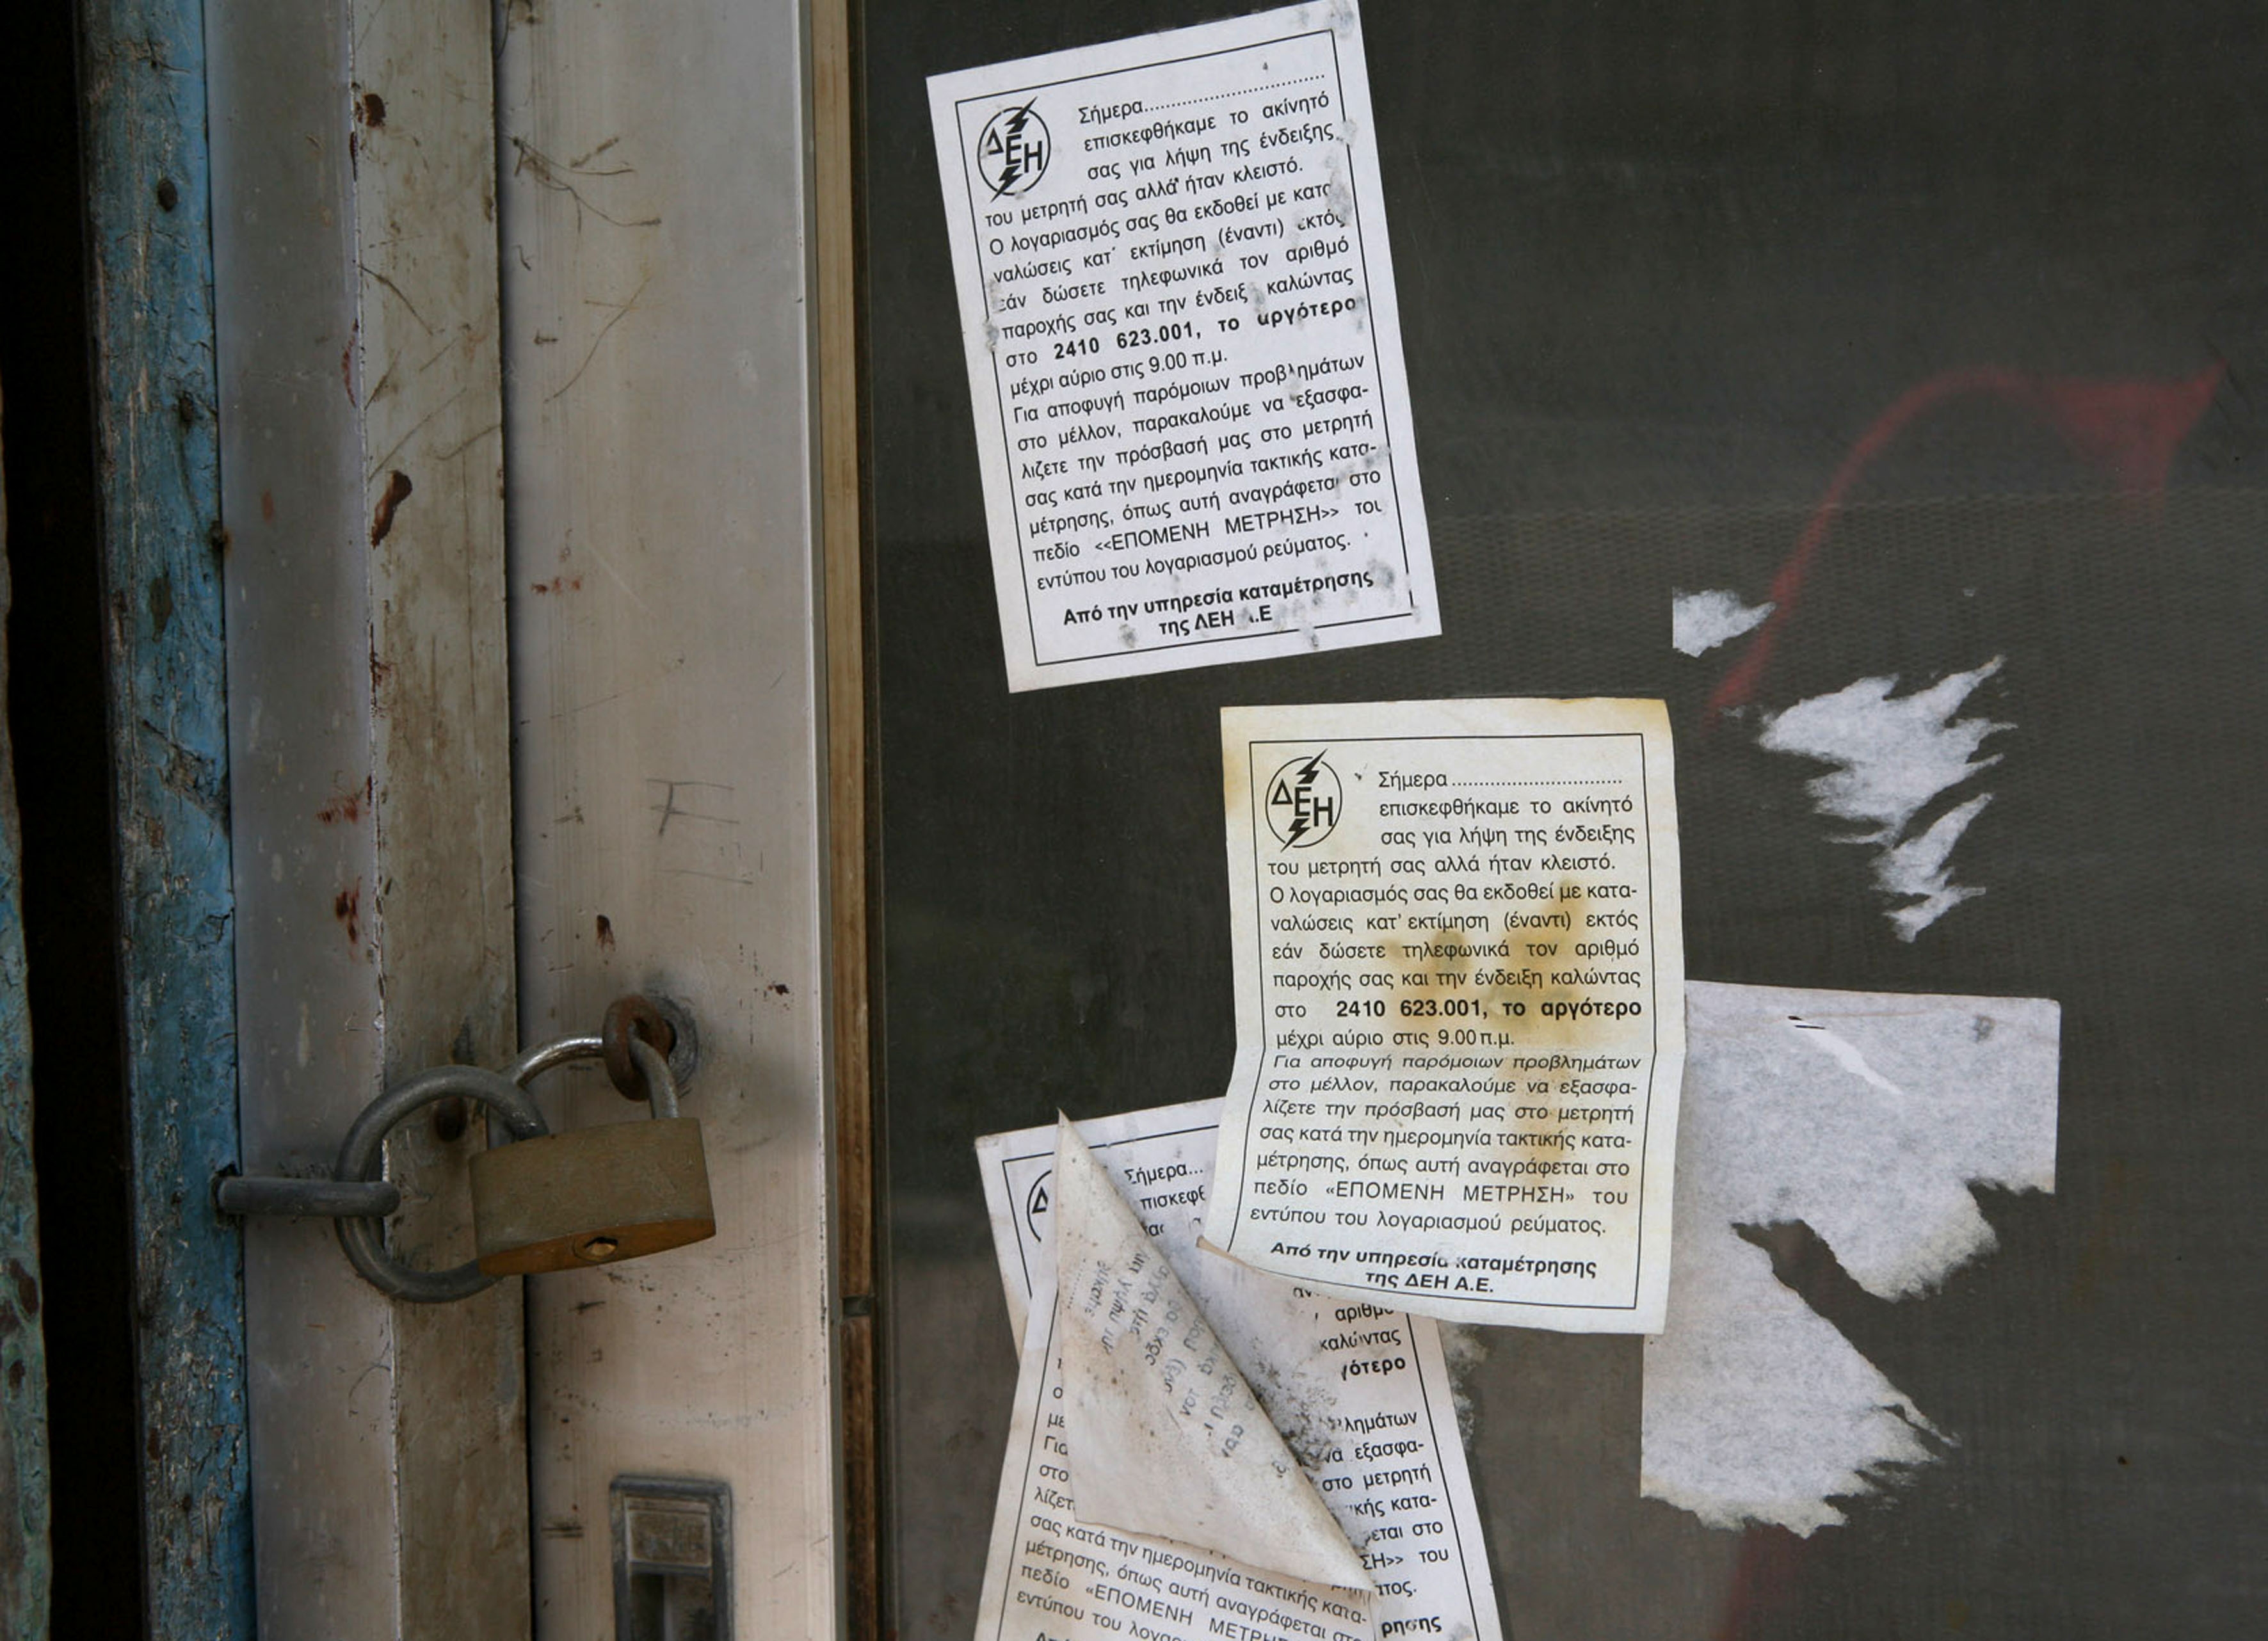 ΔΕΗ
Σήμερα
επισκεφθήκαμε το ακίνητό
σας για λήψη της ένδειξης
του μετρητή σας αλλά ήταν κλειστό.
Ο λογαριασμός σας θα εκδοθεί με κατα
ναλώσεις κατ' εκτίμηση (έναντι) εκτός
εάν δώσετε τηλεφωνικά τον αριθμό
παροχής σας και την ένδειξ καλώντας
στο 2410 623.001, το αργότερο
μέχρι αύριο στις 9.00 π.μ.
Για αποφυγή παρόμοιων προβλημάτων
στο μέλλον, παρακαλούμε να εξασφα-
λιζετε την πρόσβασή μας στο μετρητή
σας κατά την ημερομηνία τακτικής κατα-
μέτρησης, όπως αυτή αναγράφεται στο
πεδίο <<ΕΠΟΜΕΝΗ ΜΕΤΡΗΣΗ>> του
εντύπου του λογαριασμού ρεύματος.
Από την υπηρεσία καταμέτρησης
της ΔΕΗ Α.Ε
ΔΕΗ
Σήμερα
επισκεφθήκαμε το ακίνητό
σας για λήψη της ένδειξης
του μετρητή σας αλλά ήταν κλειστό.
Ο λογαριασμός σας θα εκδοθεί με κατα-
ναλώσεις κατ' εκτίμηση (έναντι) εκτός
εάν δώσετε τηλεφωνικά τον αριθμό
παροχής σας και την ένδειξη καλώντας
στο 2410 623.001, το αργότερο
μέχρι αύριο στις 9.00 π.μ.
Για αποφυγή παρόμοιων προβλημάτων
στο μέλλον, παρακαλούμε να εξασφα-
λίζετε την πρόσβασή μας στο μετρητή
σας κατά την ημερομηνία τακτικής κατα-
μέτρησης, όπως αυτή αναγράφεται στο
πεδίο «ΕΠΟΜΕΝΗ ΜΕΤΡΗΣΗ» του
εντύπου του λογαριασμού ρεύματος.
Από την υπηρεσία καταμέτρησης
της ΔΕΗ Α.Ε.
Σήμερα...
αριθμο
καλώντας
γότερο
λημάτων
να εξασφα-
στο μετρητή
κής κατα-
εται στο
ΣΗ>> του
τος.
ρησης
Για
στο
λίζετ
σας κατά την ημερομηνία τακτικής κατα-
μέτρησης, όπως αυτή αναγράφεται στο
πεδίο «ΕΠΟΜΕΝΗ ΜΕΤΡΗ
εντύπου του λογαρ